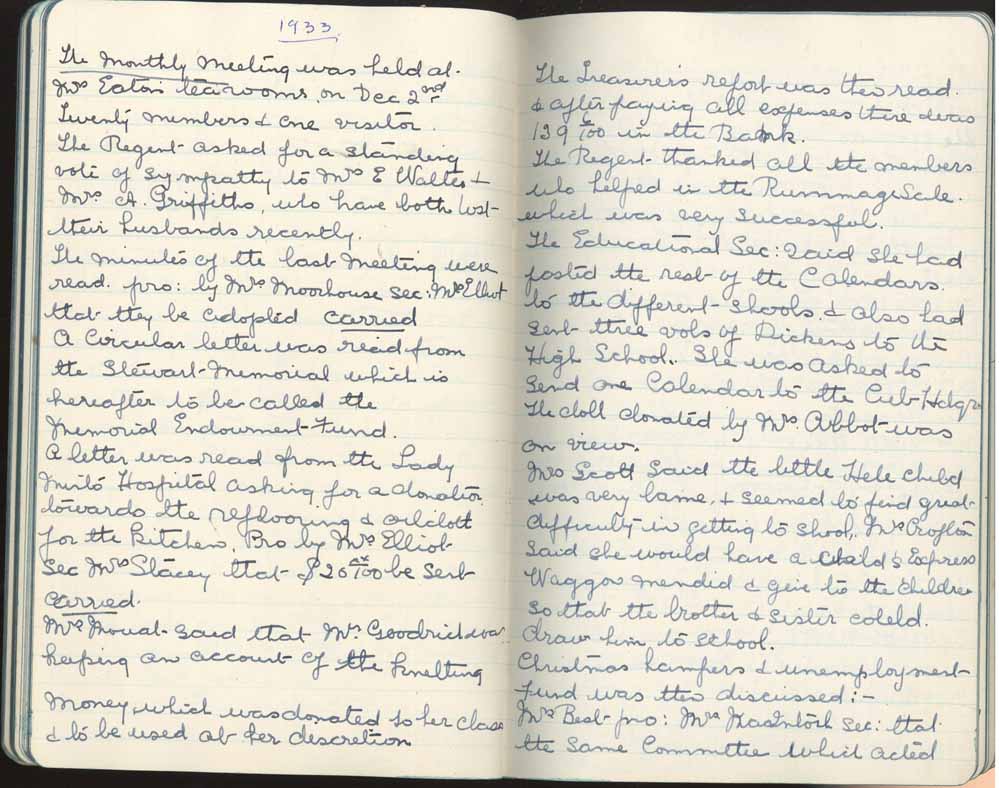 1933.
The Monthly Meeting was held at
Mrs Eaton's tearooms, on Dec 2nd
Twenty members & one visitor.
The Regent asked for a standing
vote of sympathy to Mrs E Walter &
Mrs. A. Griffiths, who have both lost
their husbands recently.
The minutes of the last Meeting were
read. pro: by Mrs Moorhouse Sec: Mrs Elliot
that they be adopted carried
A Circular letter was read from
the Stewart Memorial which is
hereafter to be called the
Memorial Endowment Fund.
A letter was read from the Lady
Minto Hospital asking for a donation
towards the reflooring & oilcloth
for the kitchen, Pro by Mrs Elliot
Sec Mrs Stacey that $20 xx/100 be sent
carried.
Mrs Mouat said that Mrs Goodrich was
keeping an account of the knitting
Money, which was donated to her class
& to be used at her discretion
The Treasurer's report was then read.
& after paying all expenses there was
139 /100 in the Bank.
The Regent thanked all the members
who helped in the Rummage Sale.
which was very successful.
The Educational Sec: said she had
posted the rest of the Calendars.
to the different shools, & also had
sent three vols of Dickens to the
High School. She was asked to
send one Calendar to the Cub Hdqr
The doll donated by Mrs Abbot was
on view.
Mrs Scott said the little Hele child
was very lame, & seemed to find great
difficulty in getting to shool, Mrs Crofton
said she would have a child's Express
Waggon mendid & give to the children
so that the brother & sister could.
draw him to school.
Christmas hampers & unemployment
Fund was then discussed:-
Mrs Best pro: Mrs Sec: that
the same Committee which acted